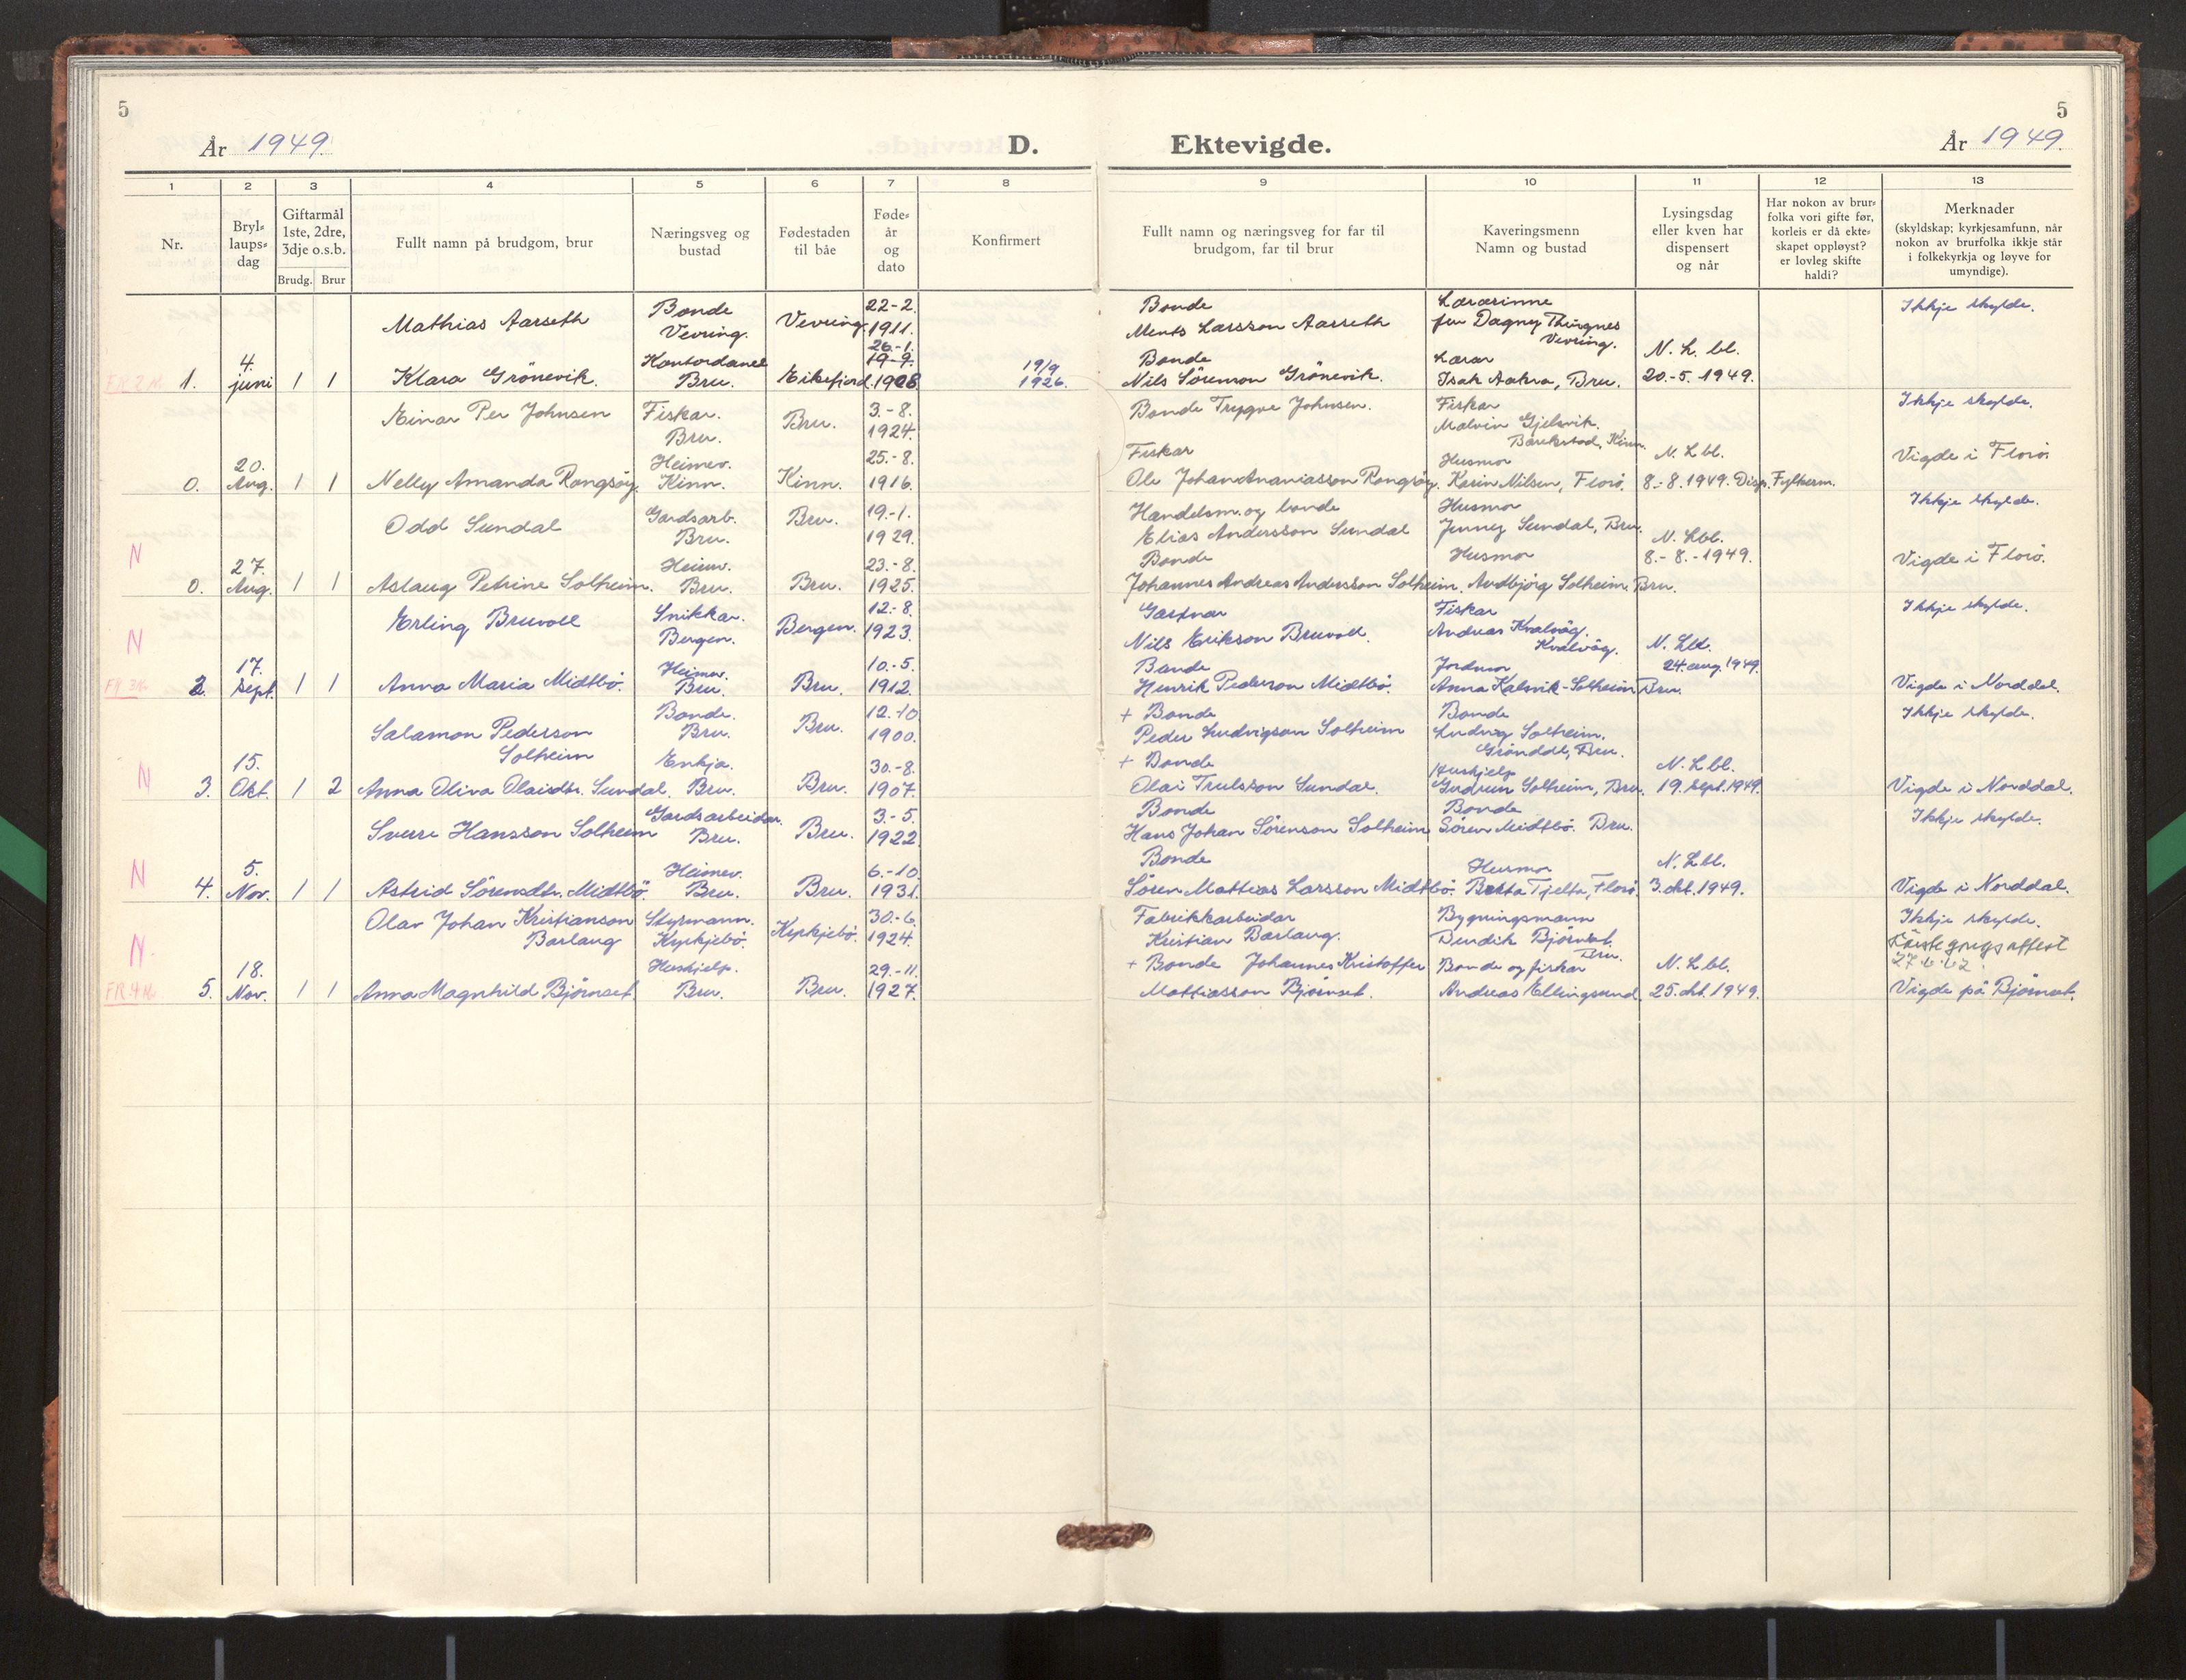 5
5
År 1949.
D. Ektevigde.
År 1949.
1 2 3 4 5 6 7 8 9 10 11 12 13
Nr.
Bryl-
laups-
dag
Giftarmål
1ste, 2dre,
3dje o.s.b.
Brudg. Brur
Fullt namn på brudgom, brur
Næringsveg og
bustad
Fødestaden
til båe
Føde-
år
og
dato
Konfirmert
Fullt namn og næringsveg for far til
brudgom, far til brur
Kaveringsmenn
Namn og bustad
Lysingsdag
eller kven har
dispensert
og når
Har nokon av brur-
folka vori gifte før,
korleis er då ekte-
skapet oppløyst?
er lovleg skifte
haldi?
Merknader
(skyldskap; kyrkjesamfunn, når
nokon av brurfolka ikkje står
i folkekyrkja og løyve for
umyndige).
Mathias Aarseth
Bonde
Vevring.
Vevring.
22-2.
1911.
Bonde
Ments Larsson Aarseth
Lærarinne
fru Dagny Thingnes
Vevring.
Ikkje skylde.
1.
4.
juni
1 1
Klara Grönevik.
Kontordame
Bru.
Eikefjord.
26.-1.
19-9.
1908
19/9
1926.
Bonde
Nils Sörenson Grönevik.
Lærar
Isak Aakra, Bru.
N. L. bl.
20.-5. 1949.
Einar Per Johnsen
Fiskar.
Bru.
Bru.
3.-8.
1924.
Bonde Trygve Johnsen.
Fiskar
Malvin Gjelsvik.
Barekstad, Kinn.
Ikkje skylde.
0.
20.
Aug.
1 1
Nelly Amanda Rongsöy.
Heimev.
Kinn.
Kinn.
25.-8.
1916.
Fiskar
Ole Johan Ananiasson Rongsöy.
Husmor
Karin Nilsen, Florö.
N. L. bl.
8.-8. 1949. Disp. Fylkesm.
Vigde i Florö.
Odd Sundal
Gardsarb.
Bru.
Bru.
19.-1.
1929.
Handelsm. og bonde
Elias Andersson Sundal
Husmor
Jenny Sundal, Bru.
Ikkje skylde.
N
0.
27.
Aug.
1 1
Aslaug Petrine Solheim.
Heimv.
Bru.
Bru.
23.-8.
1925.
Bonde
Johannes Andreas Andersson Solheim.
Husmor
Audbjörg Solheim. Bru.
N. Lbl.
8.-8.-1949.
Vigde i Florö.
N
Erling Bruvoll
Snikkar.
Bergen.
Bergen.
12.-8.
1923.
Gartnar
Nils Erikson Bruvoll.
Fiskar
Andreas Kvalvåg.
Kvalvåg.
Ikkje skylde.
2.
17.
Sept.
1 1
Anna Maria Midtbö.
Heimev.
Bru.
Bru.
10.-5.
1912.
Bonde
Henrik Pederson Midtbö.
Jordmor
Anna Kalsvik-Solheim Bru.
N. Lbl.
24. aug. 1949.
Vigde i Norddal.
Salamon Pederson
Solheim
Bonde.
Bru.
Bru.
12.-10
1900.
+ Bonde
Peder Ludvigson Solheim
Bonde
Ludvig Solheim.
Gröndal, Bru.
Ikkje skylde.
N
3.
15.
Okt.
1 2
Anna Oliva Olaisdtr. Sundal.
Enkja.
Bru.
Bru.
30.-8.
1907.
+ Bonde
Olai Trulsson Sundal.
Hushjelp
Gudrun Solheim, Bru.
N. L bl.
19. sept. 1949.
Vigde i Norddal.
Sverre Hansson Solheim
Gardsarbeidar.
Bru.
Bru.
3.-5.
1922.
Bonde
Hans Johan Sörenson Solheim
Bonde
Sören Midtbö. Bru.
Ikkje skylde.
N
4.
5.
Nov.
1 1
Astrid Sörensdtr. Midtbö
Heimev.
Bru.
Bru.
6.-10.
1931.
Bonde
Sören Mattias Larsson Midtbö.
Husmor
Berta Tjelta, Florö.
N. L bl.
3. okt. 1949.
Vigde i Norddal.
Olav Johan Kristianson
Barlaug
Styrmann.
Kyrkjebö.
Kyrkjebö.
30.-6.
1924.
Fabrikkarbeidar
Kristian Barlaug.
Bygningsmann
Bendik Björnset.
Bru.
Ikkje skylde.
27.6.62.
N.
5.
18.
Nov.
1 1
Anna Magnhild Björnset.
Hushjelp.
Bru.
Bru.
29.-11.
1927.
+ Bonde Johannes Kristoffer
Mattiasson Björnset.
Bonde og fiskar
Andreas Ellingsund.
N. L bl.
25. okt. 1949.
Vigde på Björnset.